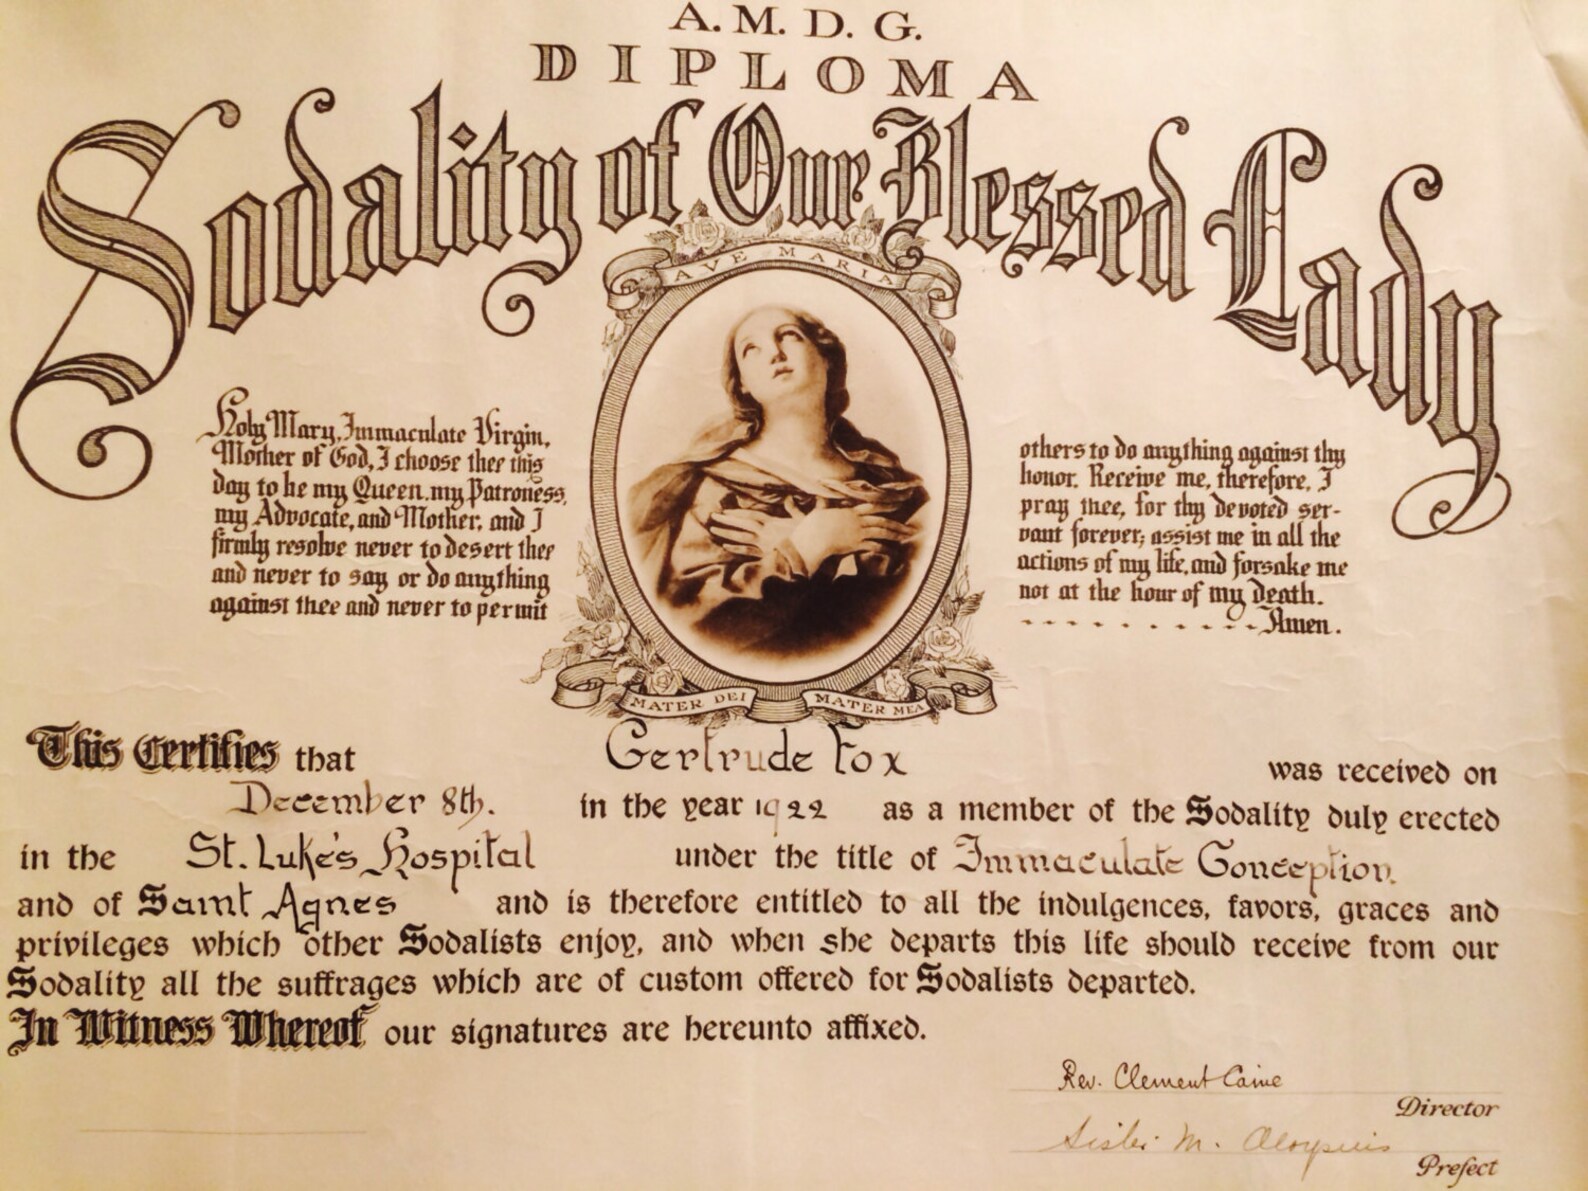 A. M. D. G.
DIPLOMA
Sodality of Our Blessed Lady
AVE MARIA
Holy Mary, Immaculate Virgin,
Mother of God, I choose thee this
day to be my Queen, my Patroness,
my Advocate, and Mother, and I
firmly resolve never to desert thee
and never to say or do anything
against thee and never to permit
others to do anything against thy
honor. Receive me, therefore, I
pray thee, for thy devoted ser-
vant forever; assist me in all the
actions of my life, and forsake me
not at the hour of my death.
- - - - - - - - - - - Amen.
MATER DEI MATER MEA
This Certifies that Gertrude Fox was received on
December 8th. in the year 1922 as a member of the Sodality duly erected
in the St. Luke's Hospital under the title of Immaculate Conception.
and of Saint Agnes and is therefore entitled to all the indulgences, favors, graces and
privileges which other Sodalists enjoy, and when she departs this life should receive from our
Sodality all the suffrages which are of custom offered for Sodalists departed.
In Witness Whereof our signatures are hereunto affixed.
Rev. Clement Caine
Director
Sister M. Aloysius
Prefect